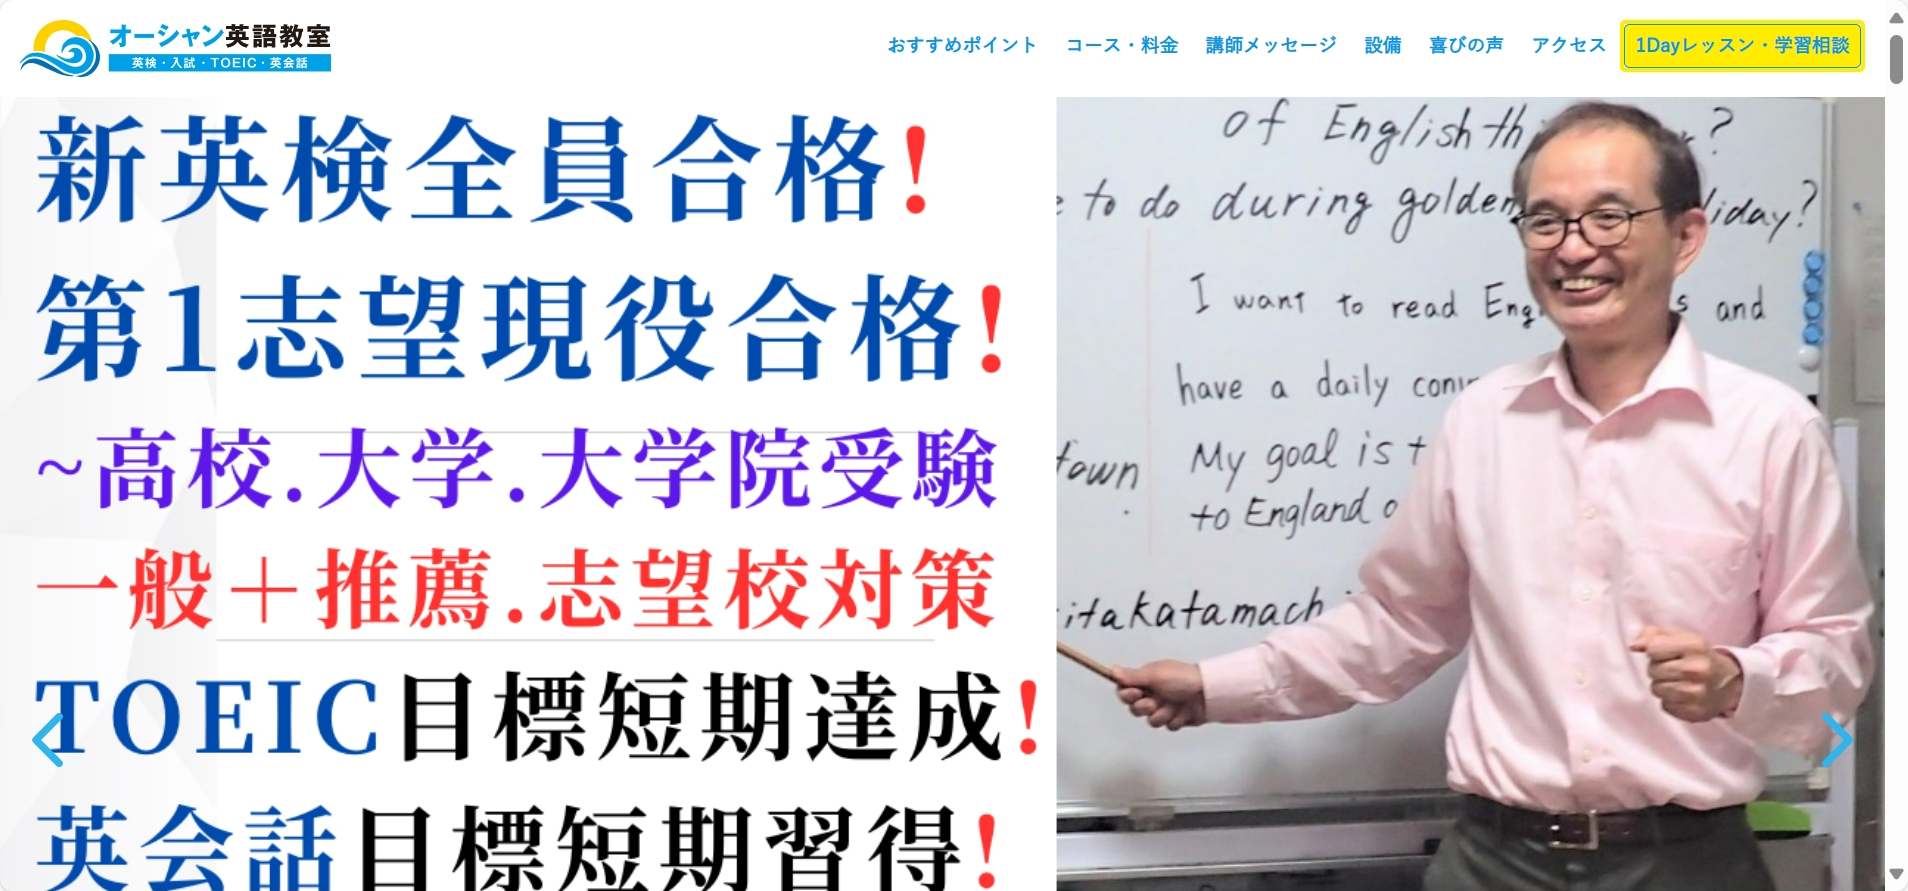 オーシャン英語教室
英検・入試・TOEIC・英会話
おすすめポイント
コース・料金
講師メッセージ
設備
喜びの声
アクセス
1Dayレッスン・学習相談
新英検全員合格!
第1志望現役合格!
~高校.大学.大学院受験
一般＋推薦.志望校対策
TOEIC目標短期達成!
英会話目標短期習得!
of English th
?
to do during golden
liday?
I want to read Eng
s and
have a daily
town
My goal is t
to England o
itakatamach